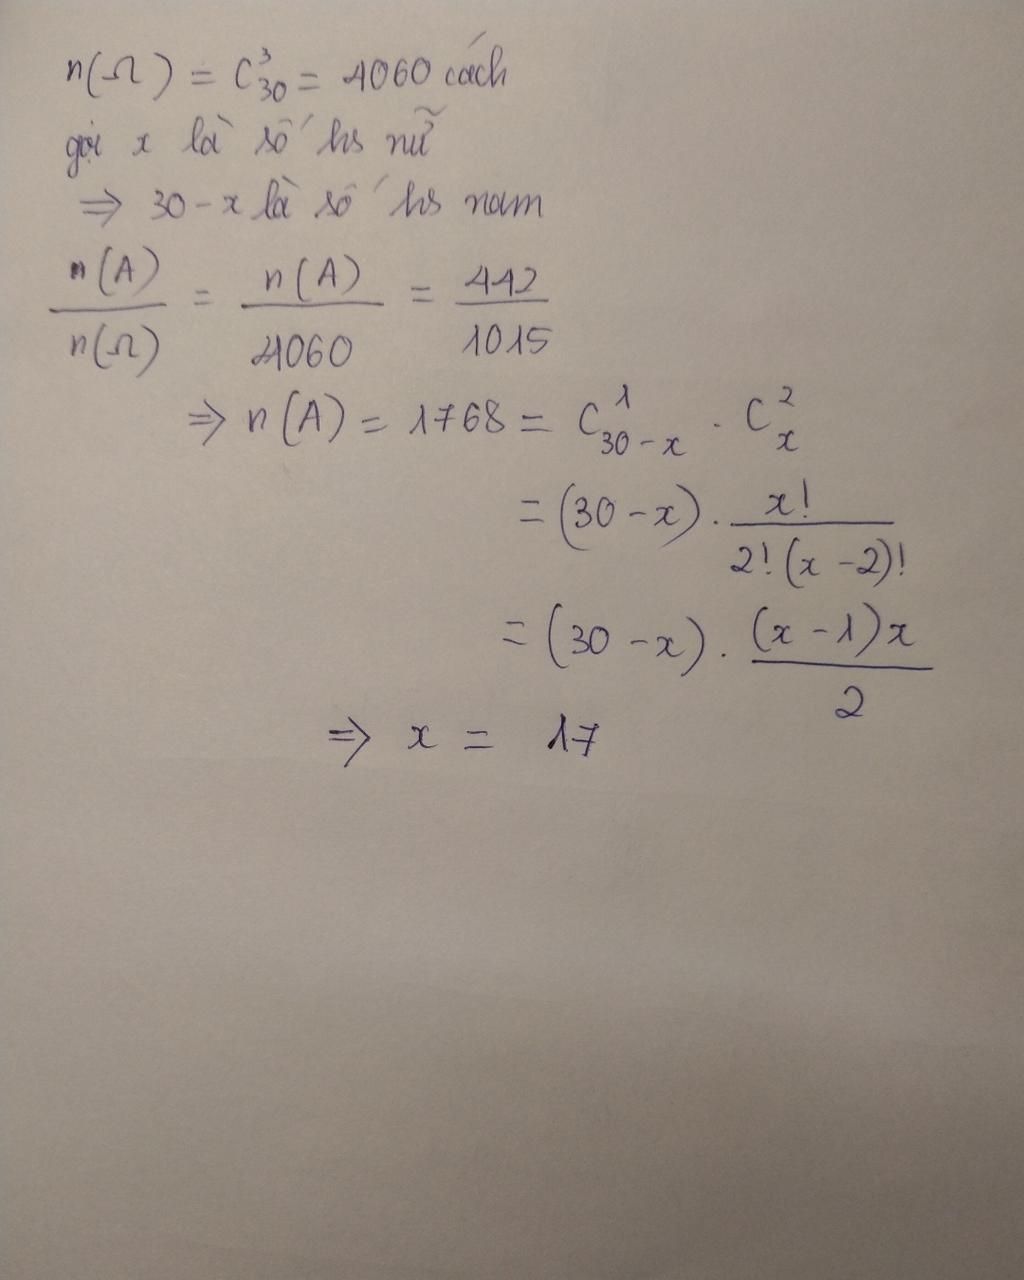 n(Ω) = C³₃₀ = 4060 cách
gọi x là số hs nữ
⇒ 30 - x là số hs nam
n(A)/n(Ω) = n(A)/4060 = 442/1015
⇒ n(A) = 1768 = C¹₃₀₋ₓ . C²ₓ
= (30 - x) . x!/2!(x - 2)!
= (30 - x) . (x - 1)x/2
⇒ x = 17